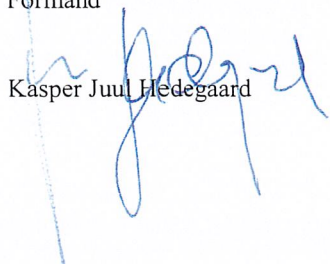 Formand
Kasper Juul Hedegaard